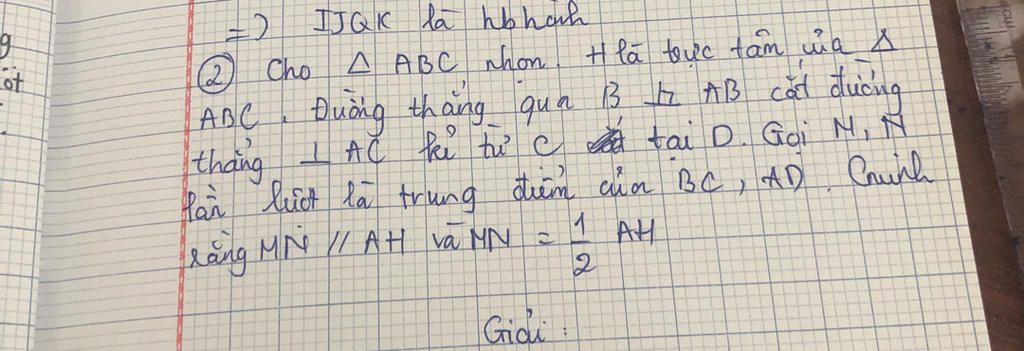 => IJQK là hbhành
② Cho Δ ABC nhọn. H là trực tâm của Δ
ABC. Đường thẳng qua B ⊥ AB cắt đường
thẳng ⊥ AC kẻ từ C tại D. Gọi M, N
lần lượt là trung điểm của BC, AD. Chứng minh
rằng MN // AH và MN = 1/2 AH
Giải: